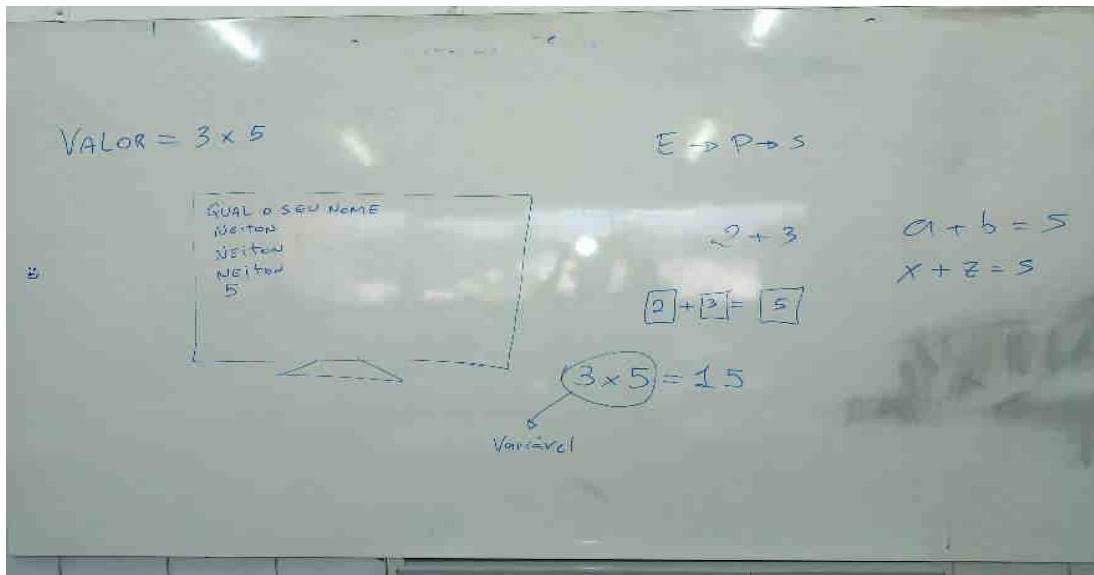 VALOR = 3 x 5
E → P → S
QUAL O SEU NOME
NEITON
NEITON
NEITON
5
2 + 3
2 + 3 = 5
3 x 5 = 15
Variável
a + b = 5
x + z = 5